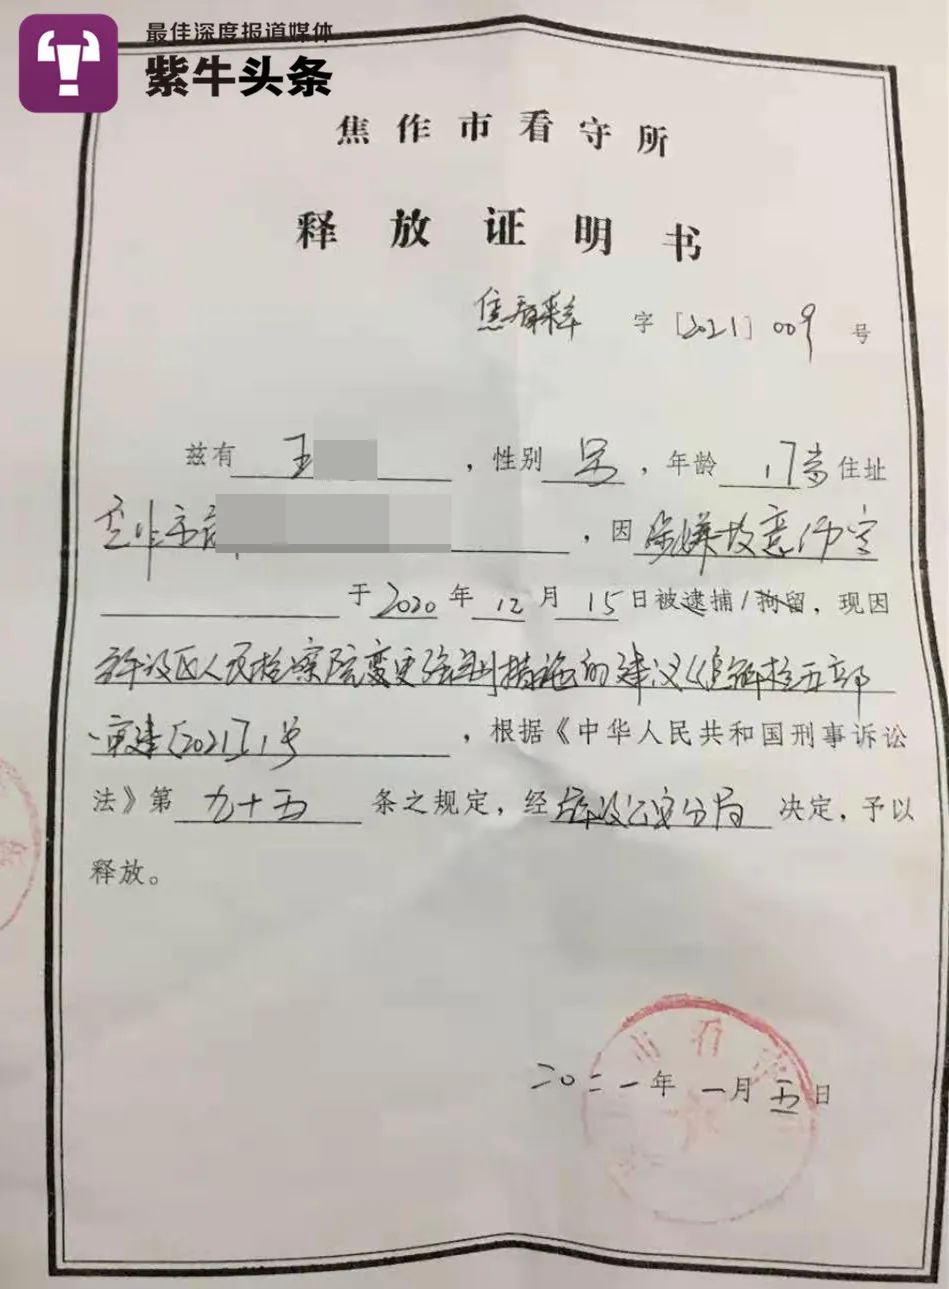 最佳深度报道媒体
紫牛头条
焦作市看守所
释放证明书
焦看释 字 [2021] 009 号
兹有 王 ，性别 男 ，年龄 17岁 住址
焦作市 ，因 涉嫌故意伤害
于 2020 年 12 月 15 日被逮捕/拘留，现因
解放区人民检察院变更强制措施的建议《焦解检五部
审建[2021]1号 ，根据《中华人民共和国刑事诉讼
法》第 九十五 条之规定，经 解放公安分局 决定，予以
释放。
二〇二一年 一月 五 日
市看守